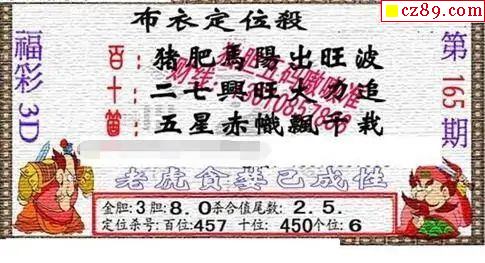 cz89.com
布衣定位殺
福彩3D
第165期
百十個
猪肥馬陽出旺波
二七興旺大力追
五星赤幟飄千栽
老虎貪婪已成性
金胆:3胆:8.0杀合值尾数:2.5.
定位杀号:百位:457 十位:450个位:6